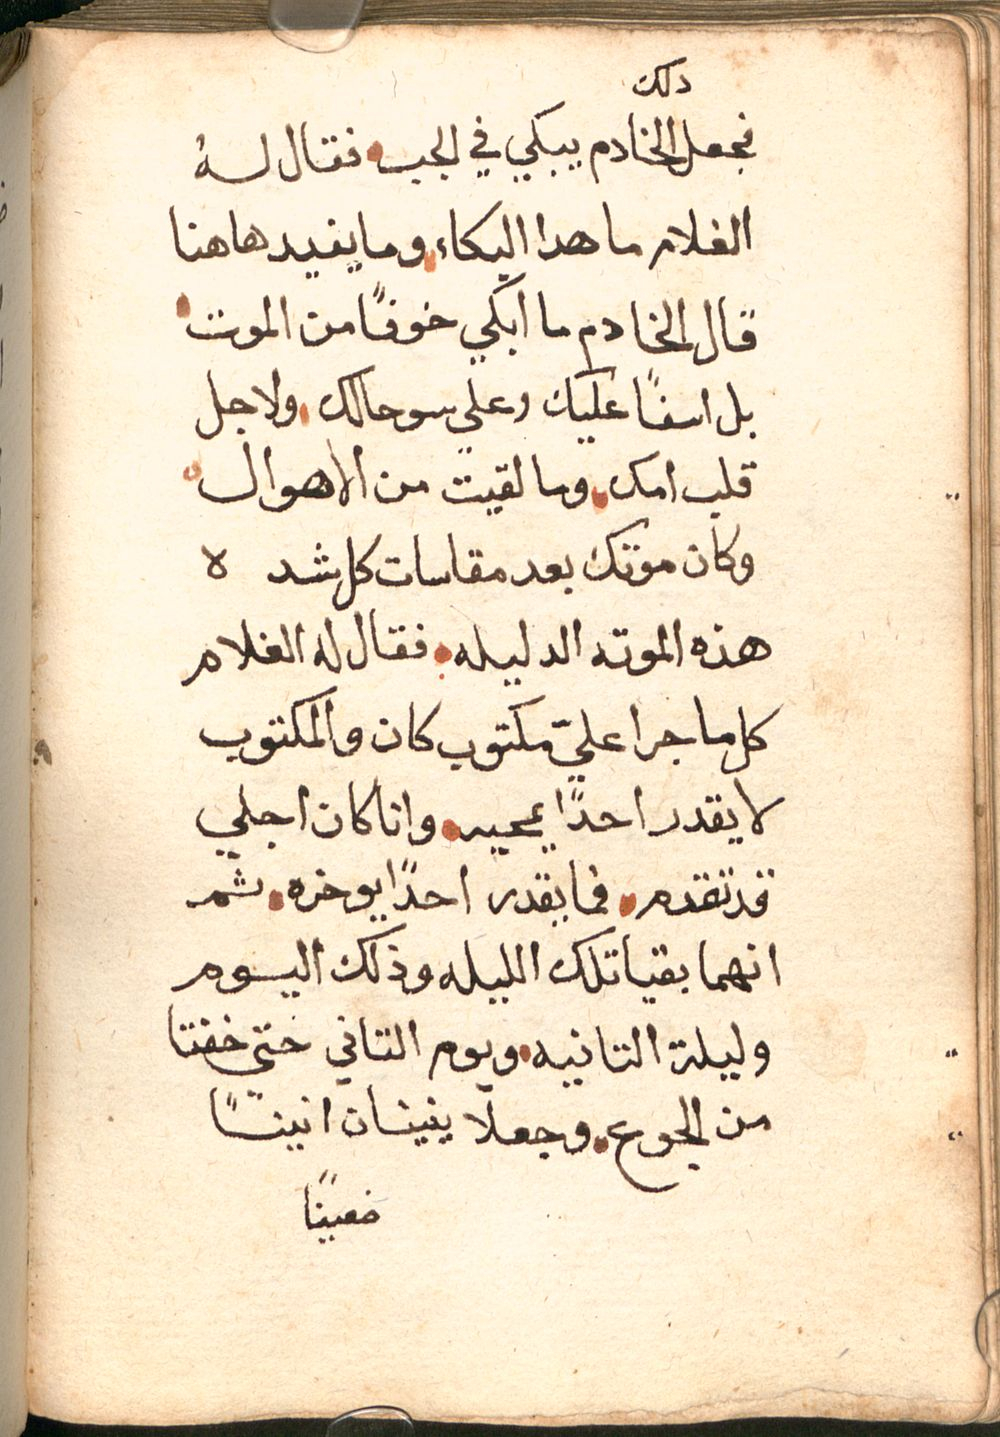 دلك
فجعل الخادم يبكي في الجب فقال له
الغلام ما هدا البكاء وما يفيد هاهنا
قال الخادم ما ابكي خوفًا من الموت
بل اسفًا عليك وعلي سو حالك ولاجل
قلب امك وما لقيت من الاهوال
وكان موتك بعد مقاسات كل شد ه
هذه الموته الدليله فقال له الغلام
كل ما جرا عليّ مكتوب كان والمكتوب
لا يقدر احدًا يمحيه وانا كان اجلي
قد تقدم فما يقدر احدًا يوخره ثم
انهما بقيا تلك الليله وذلك اليوم
وليلة التانيه ويوم التاني حتي خفتا
من الجوع وجعلا ينينان انينًا
ضعيفًا